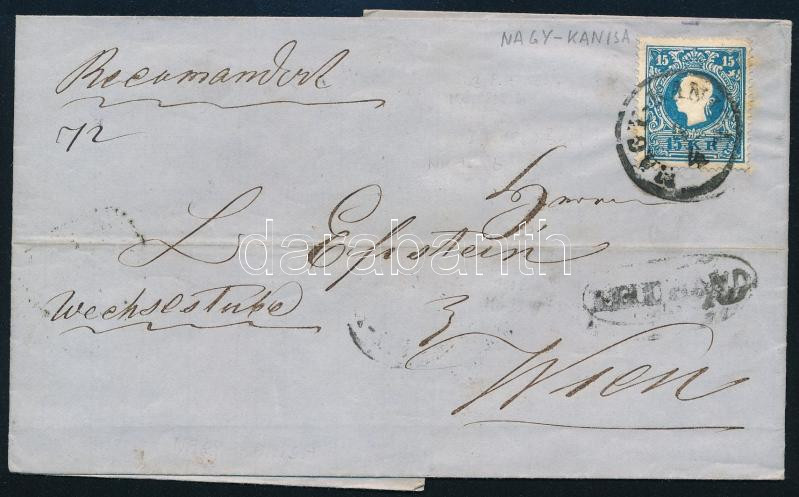 NAGY-KANISA
15 15
15 KR
Recomandirt
72
Herrn
L Epstein
Wechselstube
3
Wien
darabanth